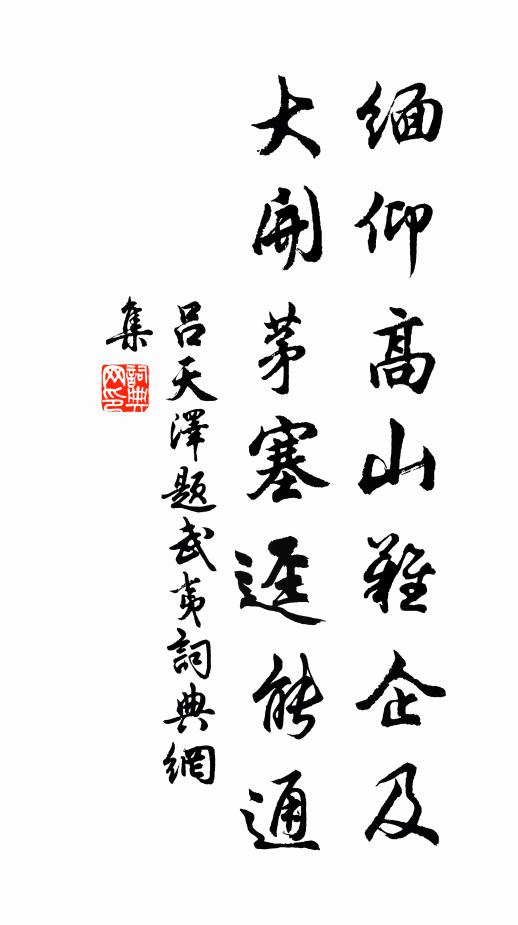 緬仰高山難企及
大開茅塞逕能通
呂天澤題武夷詞典網
集
詞典網印